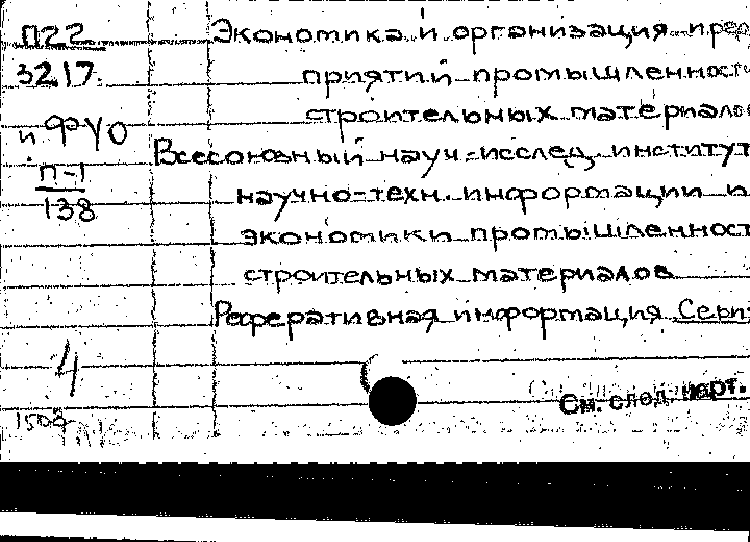 П22
3217.
и ФУО
П-1
138
4
1503
Экономика и организация пред
приятий промышленност
строительных материалов
Всесоюзный науч.-исслед. институт
научно-техн. информации и
экономики промышленност
строительных материалов
Реферативная информация Серия
См. след. карт.